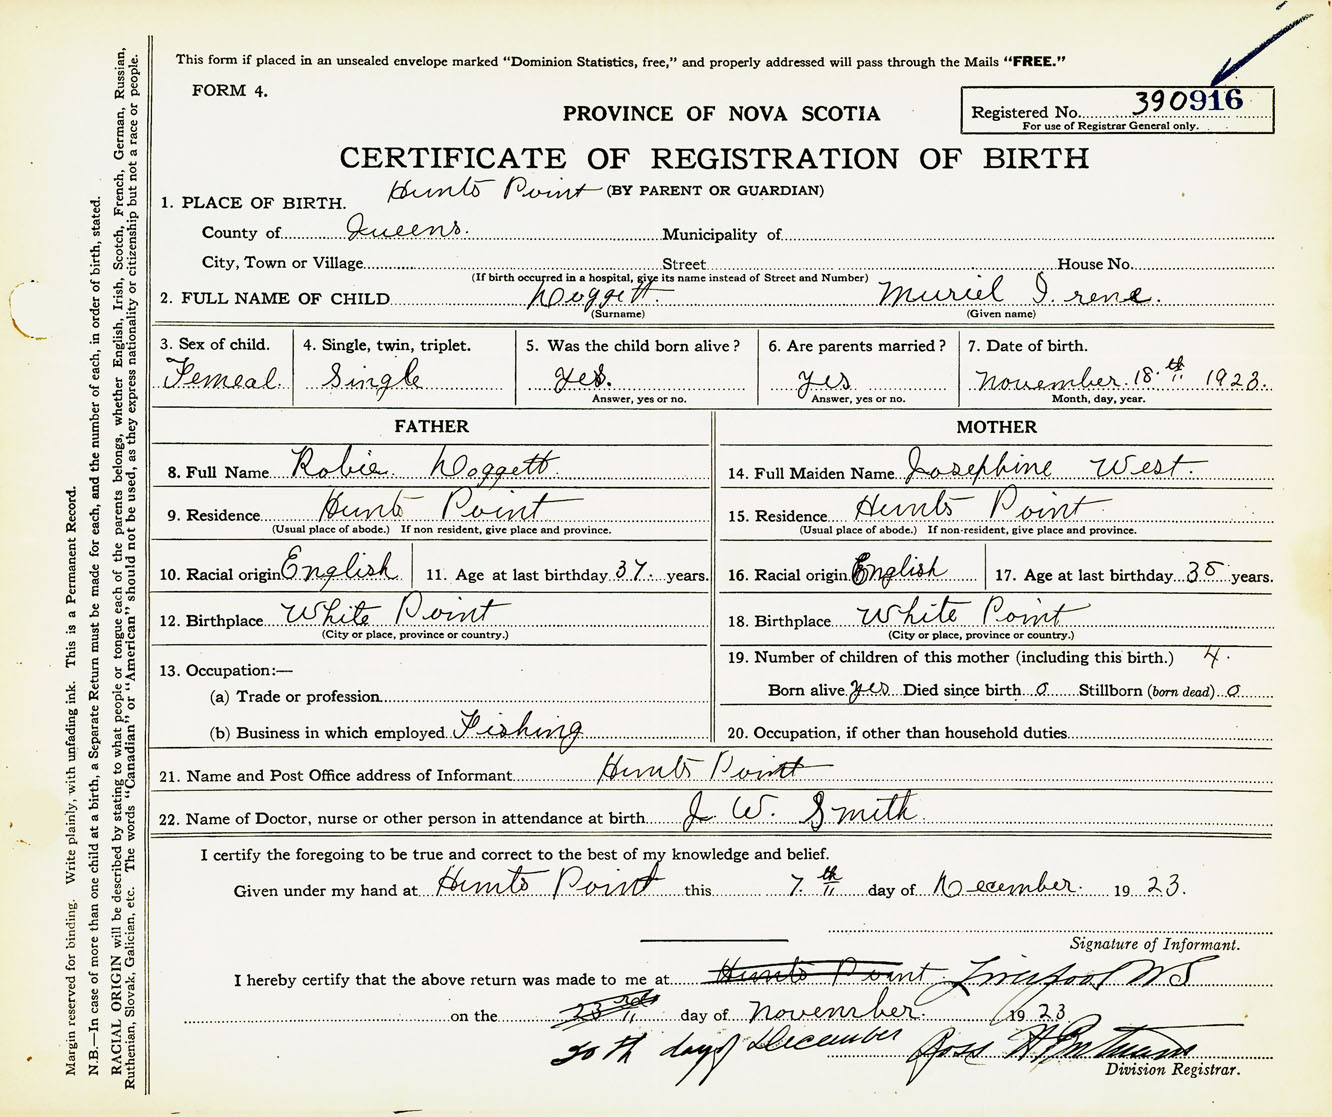 This form if placed in an unsealed envelope marked "Dominion Statistics, free," and properly addressed will pass through the Mails "FREE."
FORM 4.
PROVINCE OF NOVA SCOTIA
Registered No. 390916
For use of Registrar General only.
CERTIFICATE OF REGISTRATION OF BIRTH
Hunts Point (BY PARENT OR GUARDIAN)
1. PLACE OF BIRTH.
County of Queens. Municipality of
City, Town or Village Street House No.
(If birth occurred in a hospital, give its name instead of Street and Number)
2. FULL NAME OF CHILD Doggett. Muriel Irene.
(Surname) (Given name)
3. Sex of child. 4. Single, twin, triplet. 5. Was the child born alive? 6. Are parents married? 7. Date of birth.
Femeal Single Yes. Yes November 18th 1923.
Answer, yes or no. Answer, yes or no. Month, day, year.
FATHER MOTHER
8. Full Name Robie Doggett 14. Full Maiden Name Josephine West.
9. Residence Hunts Point 15. Residence Hunts Point
(Usual place of abode.) If non resident, give place and province. (Usual place of abode.) If non-resident, give place and province.
10. Racial origin English 11. Age at last birthday 37. years. 16. Racial origin English 17. Age at last birthday 35 years.
12. Birthplace White Point 18. Birthplace White Point
(City or place, province or country.) (City or place, province or country.)
13. Occupation:— 19. Number of children of this mother (including this birth.) 4.
(a) Trade or profession Born alive yes Died since birth 0 Stillborn (born dead) 0
(b) Business in which employed Fishing 20. Occupation, if other than household duties
21. Name and Post Office address of Informant Hunts Point
22. Name of Doctor, nurse or other person in attendance at birth J. W. Smith
I certify the foregoing to be true and correct to the best of my knowledge and belief.
Given under my hand at Hunts Point this 7th day of December 1923.
Signature of Informant.
I hereby certify that the above return was made to me at Hunts Point Liverpool NS
on the 23rd day of November 1923
20th day of December Ross H
Division Registrar.
Margin reserved for binding. Write plainly, with unfading ink. This is a Permanent Record.
N.B.—In case of more than one child at a birth, a Separate Return must be made for each, and the number of each, in order of birth, stated.
RACIAL ORIGIN will be described by stating to what people or tongue each of the parents belongs, whether English, Irish, Scotch, French, German, Russian,
Ruthenian, Slovak, Galician, etc. The words "Canadian" or "American" should not be used, as they express nationality or citizenship but not a race or people.